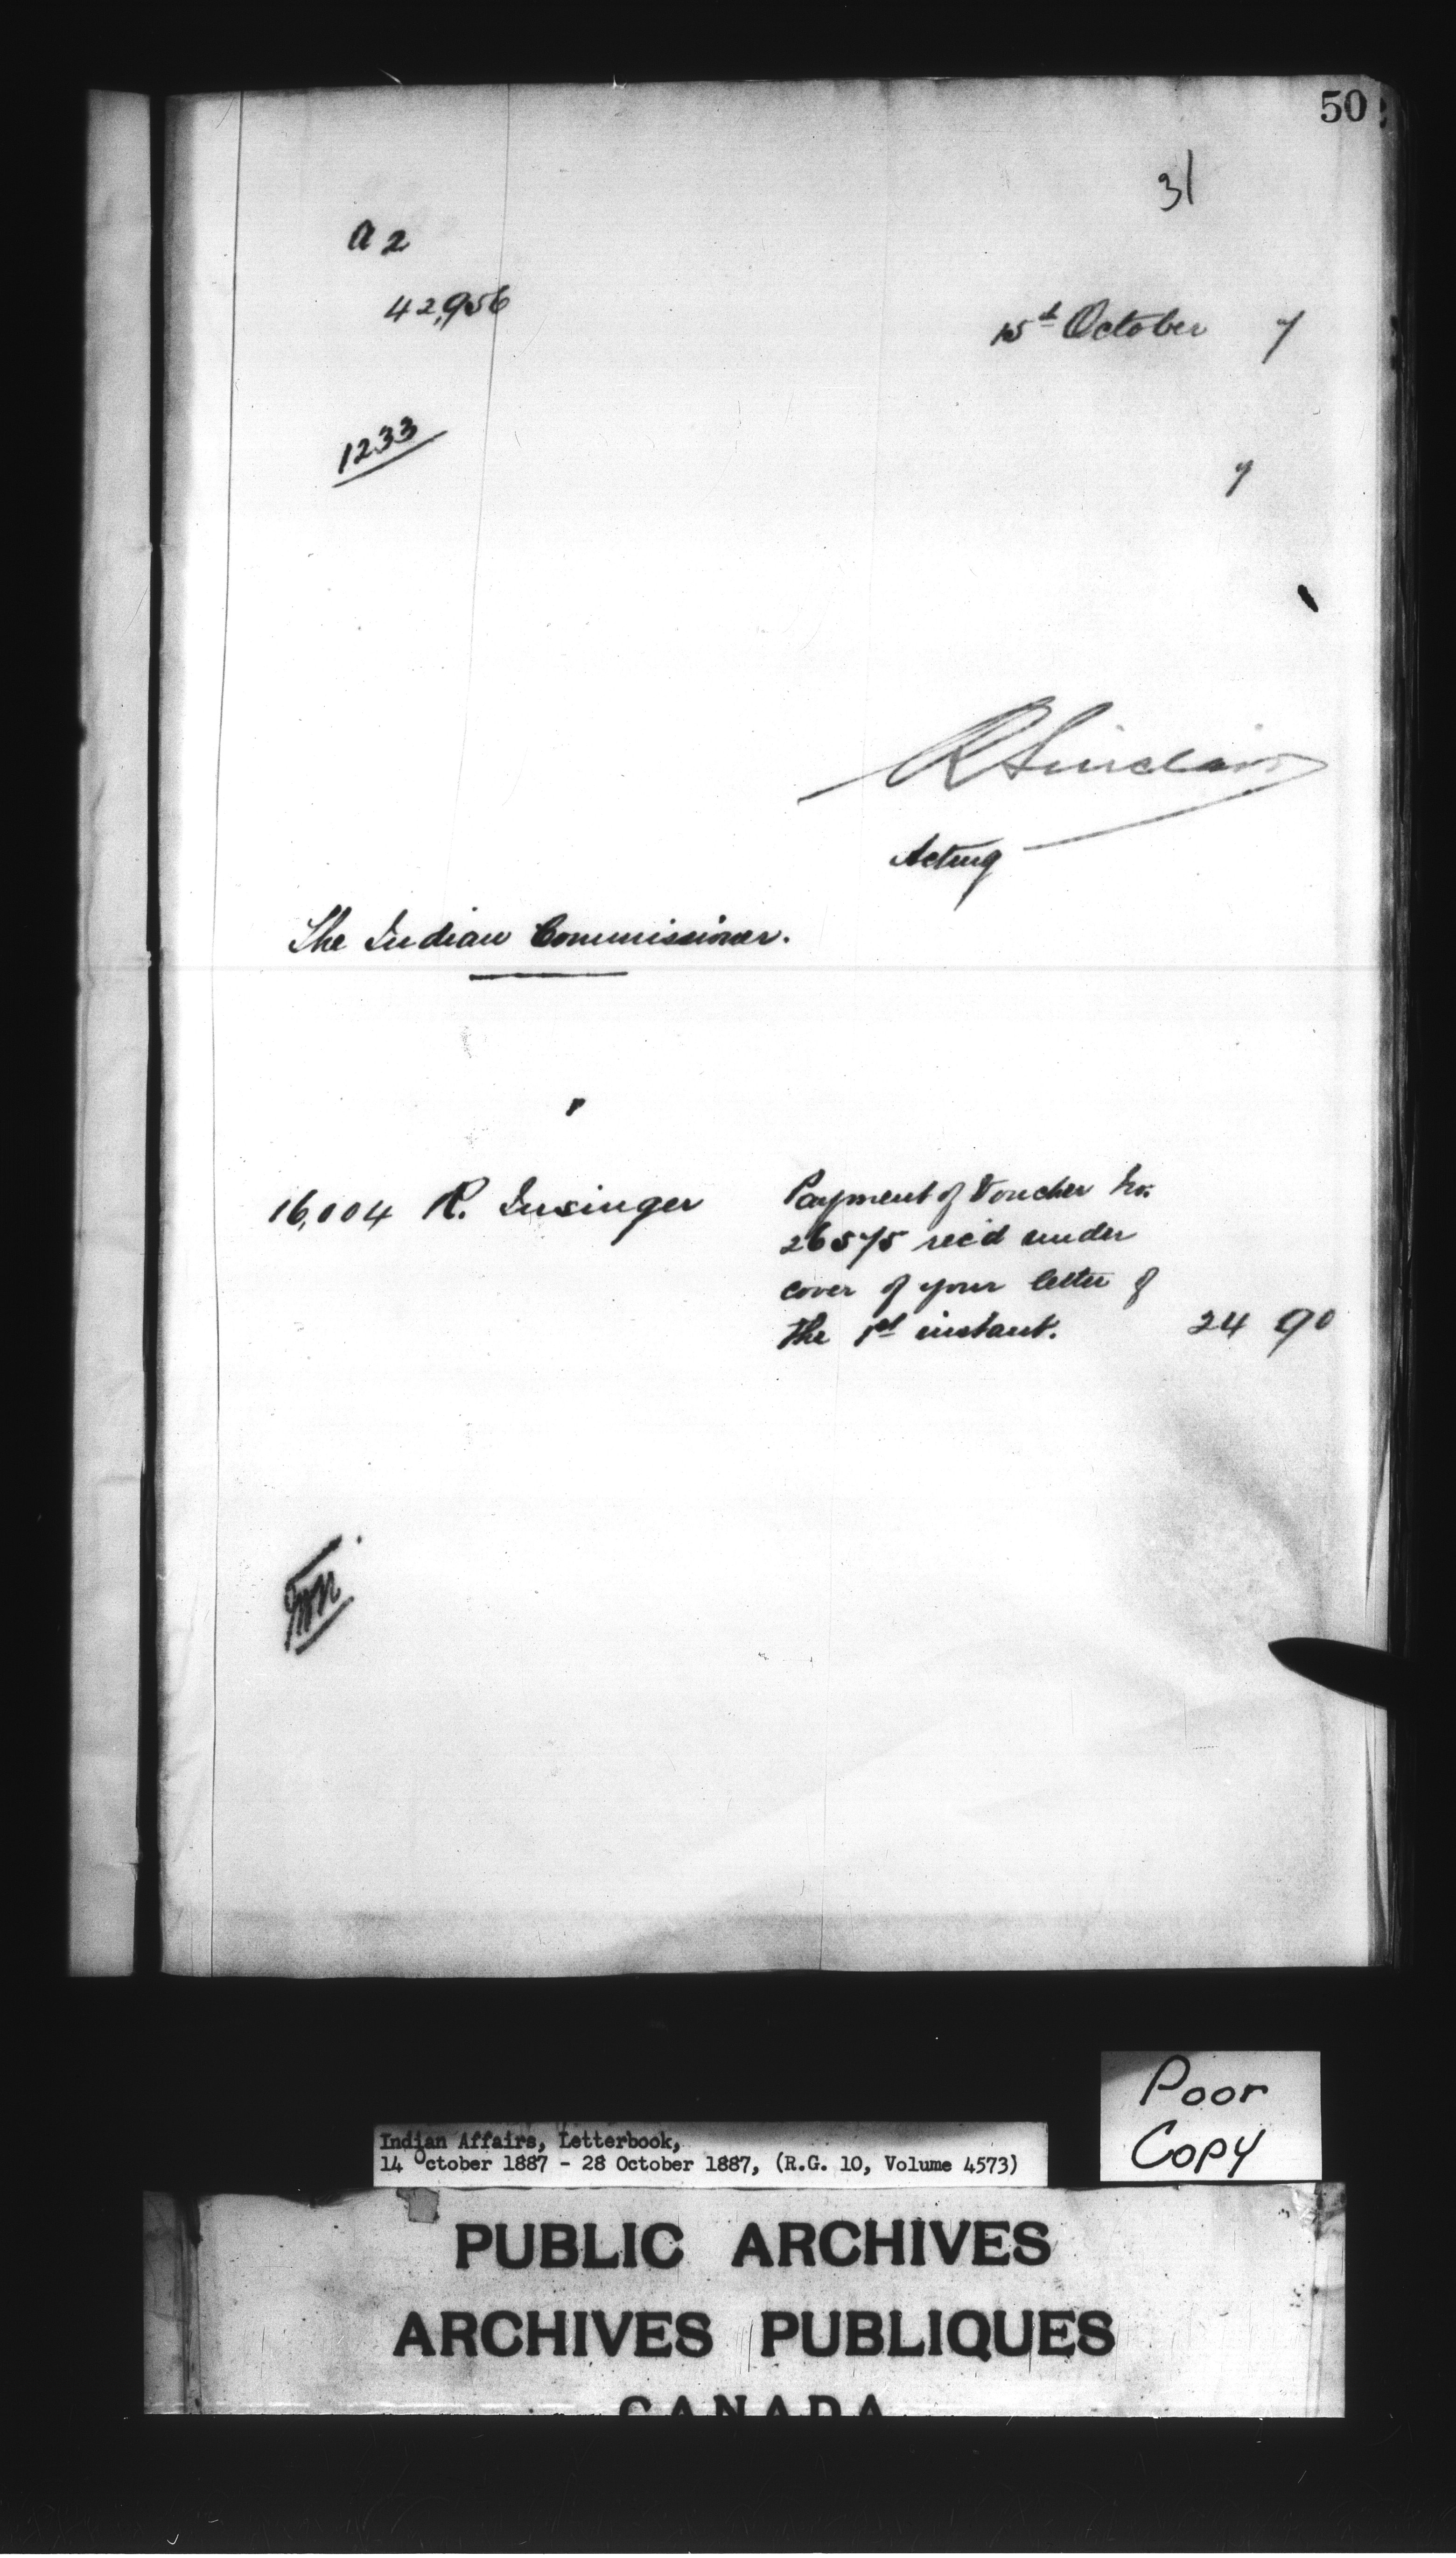 50
31
a 2
42,956
15th October 7
1233
7
R Sinclair
Acting
The Indian Commissioner.
16,004 R. Insinger
Payment of Voucher No.
26575 rec'd under
cover of your letter of
the 1st instant. 24 90
Poor
Copy
Indian Affairs, Letterbook,
14 October 1887 - 28 October 1887, (R.G. 10, Volume 4573)
PUBLIC ARCHIVES
ARCHIVES PUBLIQUES
CANADA